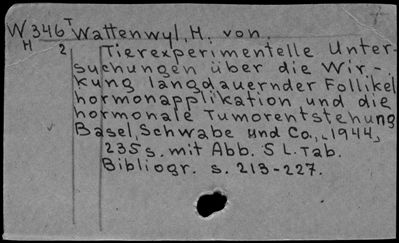 W 346 T Wattenwyl, H. von.
H 2 Tierexperimentelle Unter-
suchungen über die Wir-
kung langdauernder Follikel
hormonapplikation und die
hormonale Tumorentstehung
Basel, Schwabe und Co., 1944,
235 s. mit Abb. 5 L. Tab.
Bibliogr. s. 213-227.